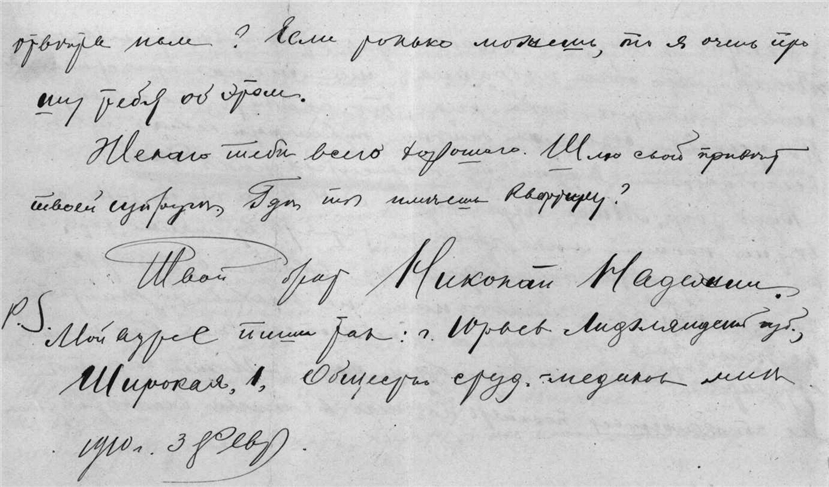 отвотра нам? Если только можешь, то я очень про
шу тебя об этом.
Желаю тебе всего хорошего. Шлю свой привет
твоей супруге. Где ты имеешь квартиру?
Твой брат Николай
P.S. Мой адрес пиши так: г. Юрьев Лифляндской губ.,
Широкая, 1, Общество студ.-медиков мне
1910 г. 3 февр.